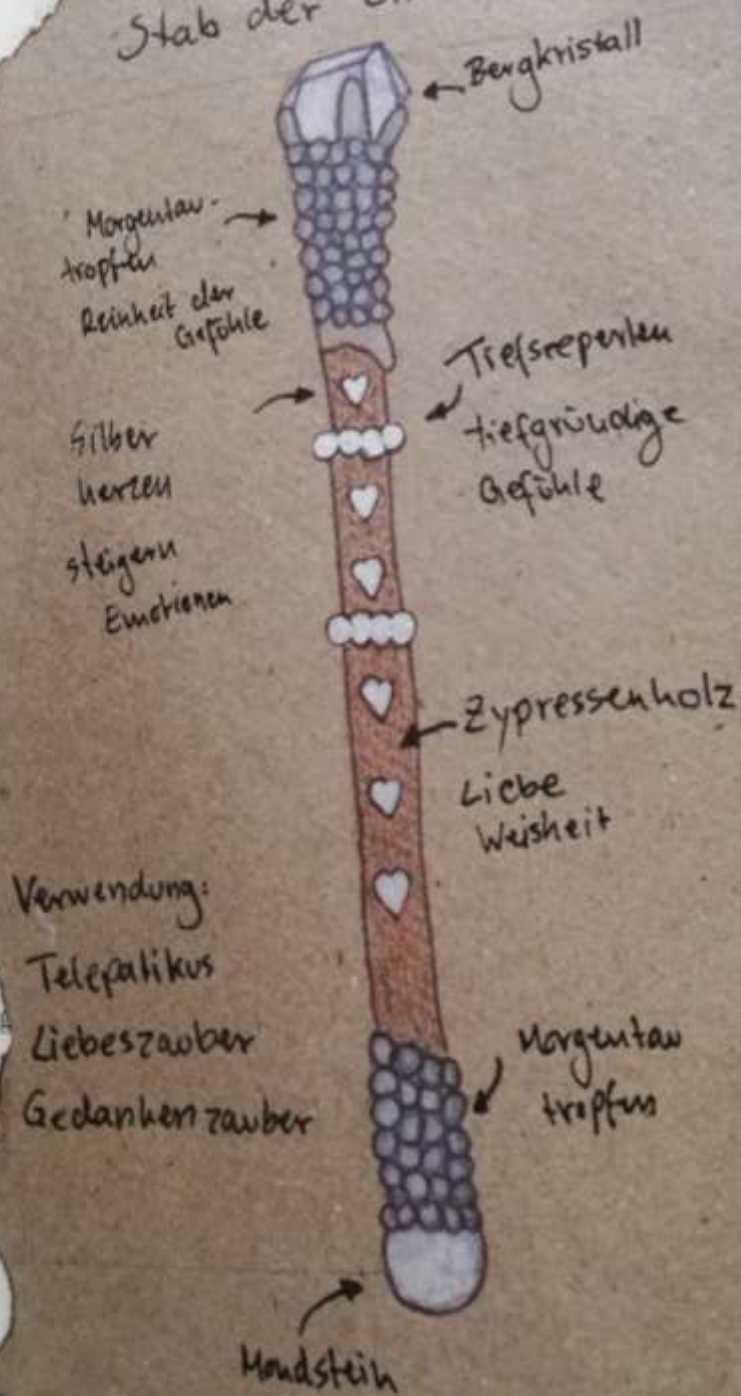 Stab der
Bergkristall
Morgentau-
tropfen
Reinheit der
Gefühle
Tiefseeperlen
tiefgründige
Gefühle
Silber
herzen
steigern
Emotionen
Zypressenholz
Liebe
Weisheit
Verwendung:
Telepatikus
Liebeszauber
Gedankenzauber
Morgentau
tropfen
Mondstein